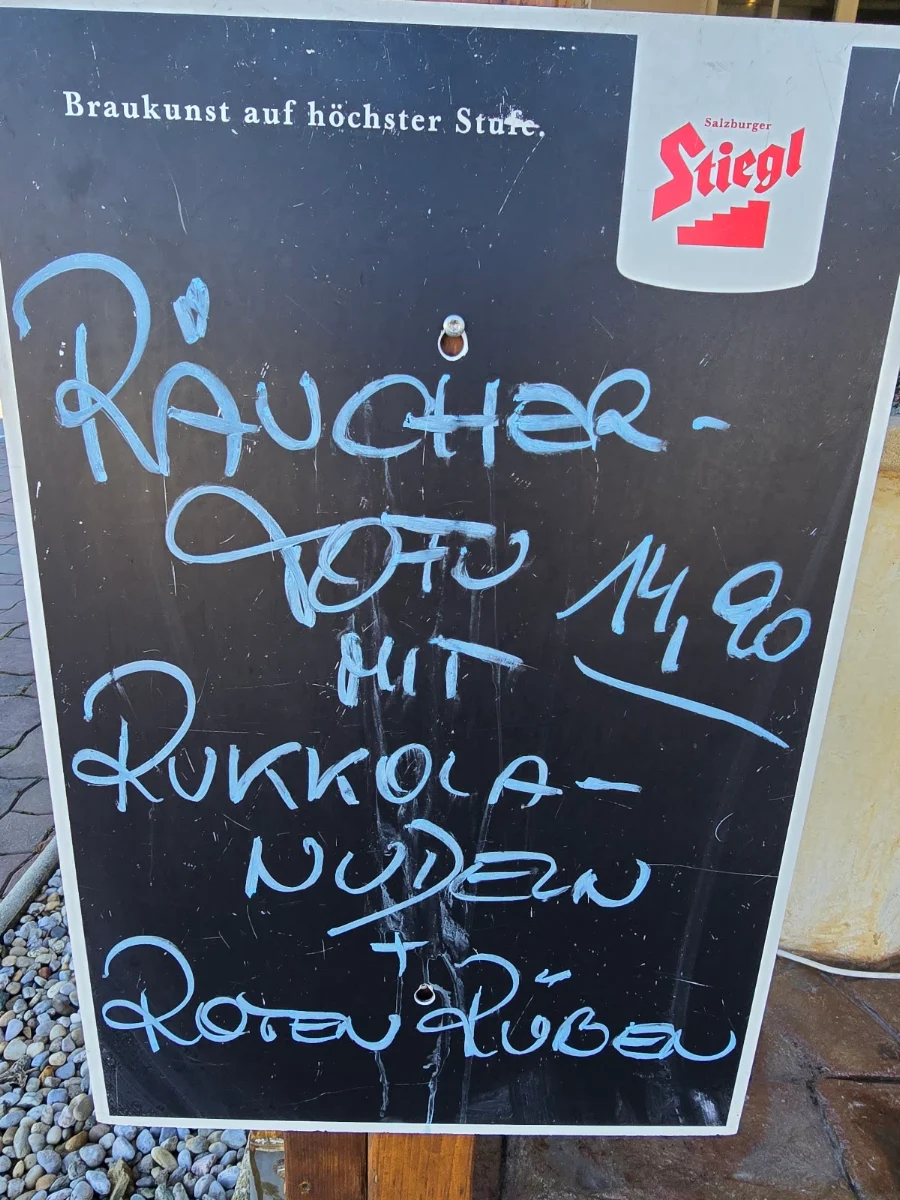 Braukunst auf höchster Stufe.
Salzburger
Stiegl
RÄUCHER-
TOFU
14,90
MIT
RUKKOLA-
NUDELN
+
ROTEN RÜBEN